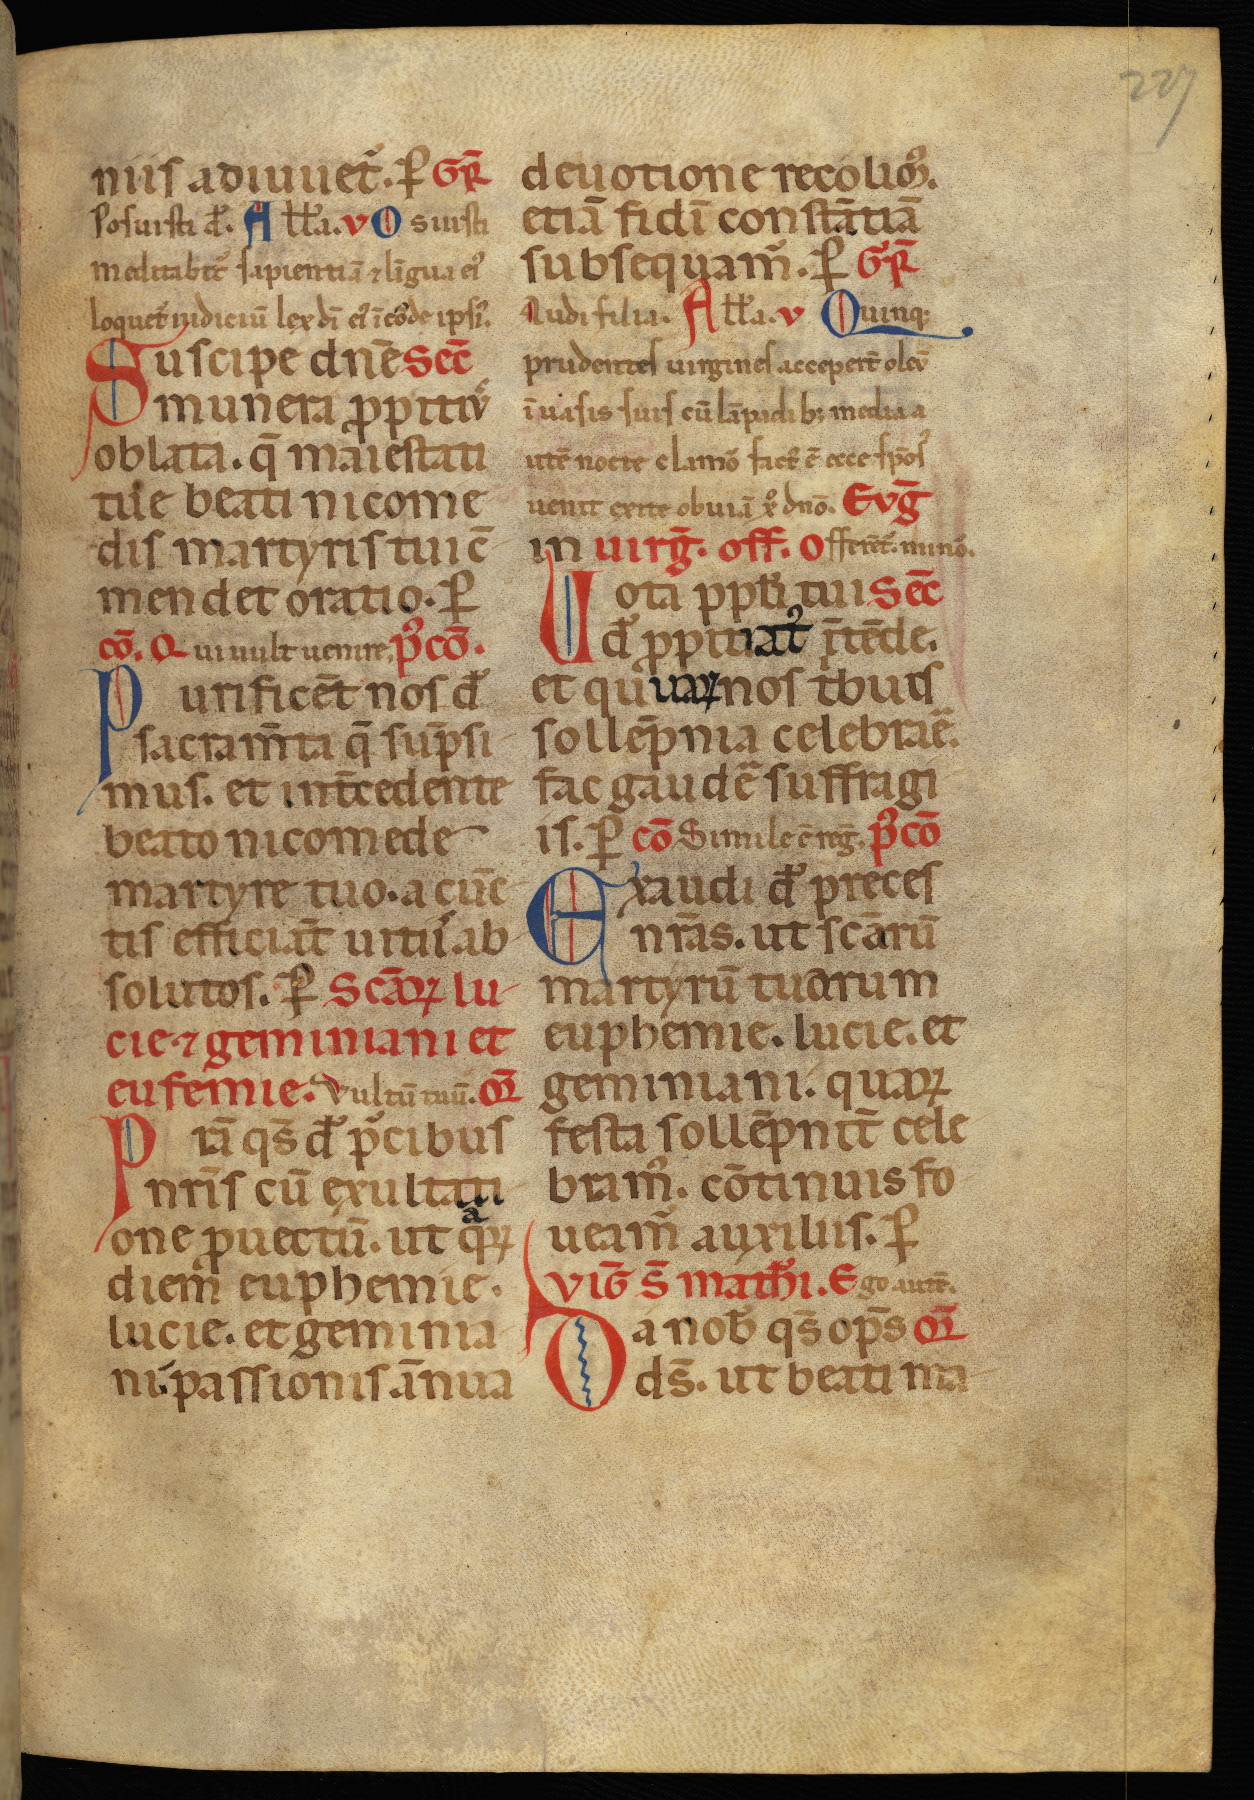 227
niis adiuuet̃. P̱ GR̃
Posuisti d̃. Alła. v O s iusti
meditabit̃ sapientiã ⁊ lĩgua ei᷒
loquet̃ iudiciũ lex dĩ ei᷒ ĩ cõde ipsi᷒.
Suscipe dnẽ Sec̃
munera ꝓpitiv᷒
oblata. q̃ maiestati
tue beati nicome
dis martyris tui c̃
mendet oratio. P̱
cõ. Qui uult uenire. p᷒ cõ.
Purificẽt nos d̃
sacram̃ta q̃ sũpsi
mus. et int̃cedente
beato nicomede
martyre tuo. a cũc
tis efficiat̃ uitiis ab
solutos. P̱ Scãꝝ lu
cie ⁊ geminiani et
eufemie. Vultũ tuũ. Or̃
Prã qs̃ d̃ p̃cibus
nr̃is cũ exultati
one ꝓuectũ. ut qaꝝ
diem̃ euphemie.
lucie. et geminia
ni. passionis ãnua
deuotione recolim᷒.
etiã fidĩ constãtiã
subsequam̃. P̱ GR̃
Audi filia. Alła. v Quinq;
prudentes uirgines acceper̃t oleũ
ĩ uasis suis cũ lãpadib; media a
utẽ nocte clamõ fact᷒ ẽ ecce spõs᷒
uenit exite obuiã x᷒ dnõ. Evg̃
in uirg̃. off. Offerẽt̃. minõ.
Uota ꝓpłi tui Sec̃
d̃ ꝓpitiat᷒ ĩtẽde.
et quuaꝝ nos t̃buis
sollẽpnia celebrar̃e.
fac gauder̃e suffragi
is. P̱ cõ Simile ẽ reg̃. p᷒ cõ
Exaudi d̃ preces
nr̃as. ut scãrũ
martyrũ tuorum
euphemie. lucie. et
geminiani. quaꝝ
festa sollẽpnit̃ cele
bram᷒. cõtinuis fo
ueam̃ auxiliis. P̱
Vig̃ S̃ mathi. Ego autẽ.
Da nob̃ qs̃ op̃s Or̃
ds̃. ut beati ma